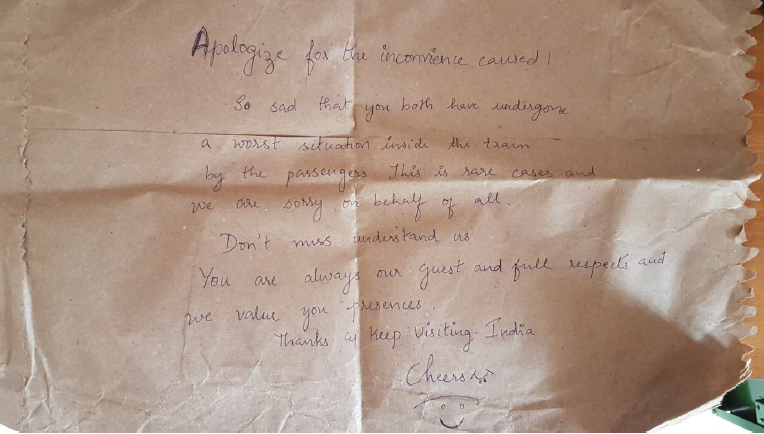 Apologize for the inconvience caused!
So sad that you both have undergone
a worst situation inside the train
by the passengers This is rare cases and
we are sorry on behalf of all.
Don't miss understand us
You are always our guest and full respects and
we value you presences.
Thanks & Keep Visiting India
Cheers